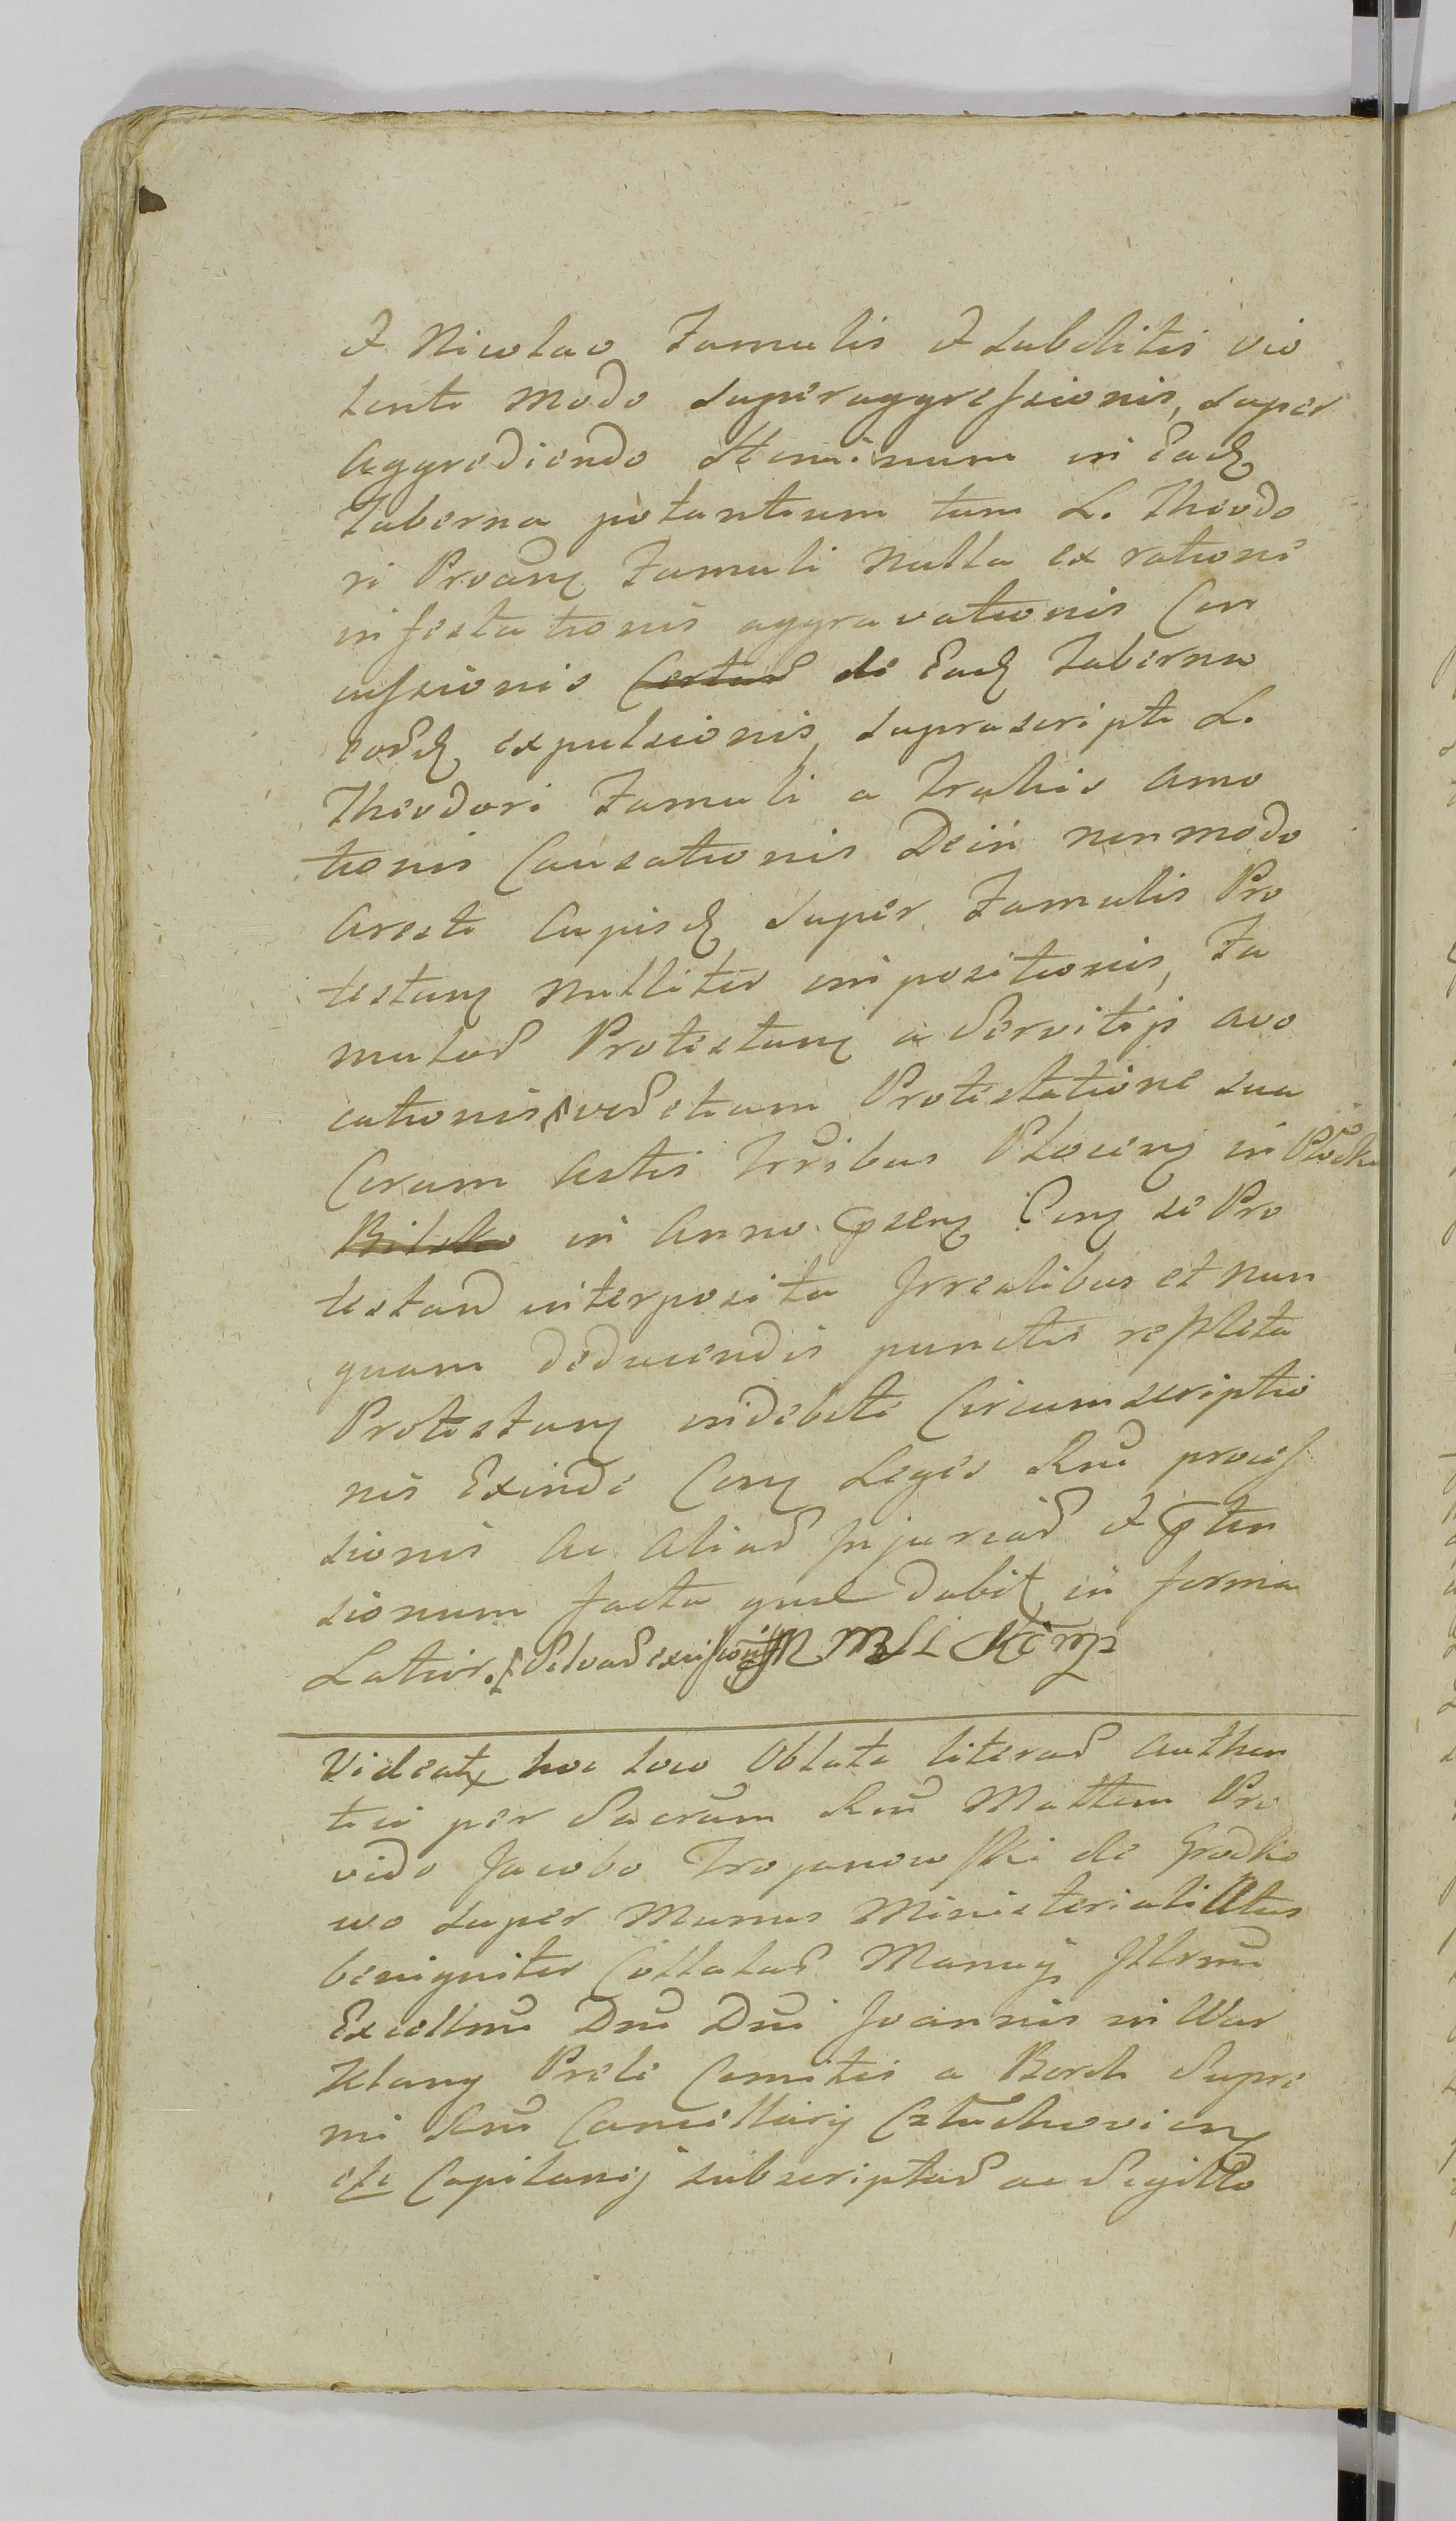 et Nicolao Famulis et subditis vio
lenti modo superaggressionis, super
Aggrediendo Hominum in Eadq
Taberna potantium tum L. Theodo
ri Proanq Famuli nulla ex ratione
infestationis aggravationis Con
cussionis Certar de Eadq Taberna
eordq expulsionis, suprascripti L.
Theodori Famuli a Trahis amo
tionis Causationis Dein nonmodo
Aresti super Famulis Pro
testanq nulliter impositionis, Fa
mulor Protestanq a Servitijs avo
cationis, etiam Protestatione sua
Coram Actis Trribus Plocenq in Plocko
Bilsko in Anno psenq Conq se Pro
testand interposita Irrealibus et nun
quam deducendis punctis repleta
Protestanq indebite Circumscriptio
nis Exinde Conq Leges Rni proces
sionis Ac aliar Injuriar et pten
sionum facta que dabit in forma
Latior.
Videatx hoc loco Oblata literar authen
tici per Sacram Rm Mattem Pro
vido Jacobo Trojanowski de Grodko
wo super Munus Ministerialitatus
benigniter Collatar Manuq Illrmi
Excellmi Dni Dni Joannis in War
klany Preli Comitis a Borch Supre
mi Rni Cancellarij Człuchovienq
etc Capitanij subscriptar ac Sigillo